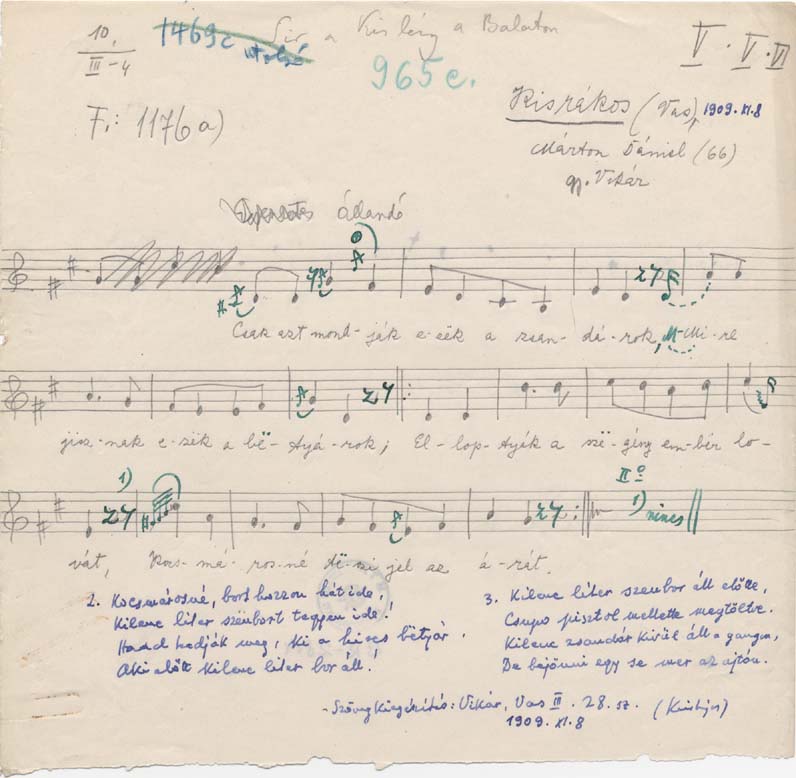 10.
III-4
1469c
utolsó
Sír a kislány a Balaton
965c.
V . V . VI
F.: 1176a)
Kisrákos (Vas), 1909.XI.8
Márton Dániel (66)
gy. Vikár
állandó
Csak azt mond-ják e-eëk a zsan-dá-rok, M-Mi-re
jisz-nak e-zëk a bë-tyá-rok; El-lop-tyák a szë-gény em-bër lo-
1)
II°
1) nincs
vát, Kocs-má-ros-né të-szi jel az á-rát.
2. Kocsmárosné, bort hozzon hát ide,
Kilenc liter színbort tegyen ide!
Hadd tudják meg, ki a híres bëtyár,
Aki előtt kilenc liter bor áll.
3. Kilenc liter színbor áll előtte,
Csupo pisztol mellette megtöltve.
Kilenc zsandár kívül áll a gangon,
De bejönni egy se mer az ajtón.
-Szövegkiegészítés: Vikár, Vas III. 28. sz.
1909.XI.8